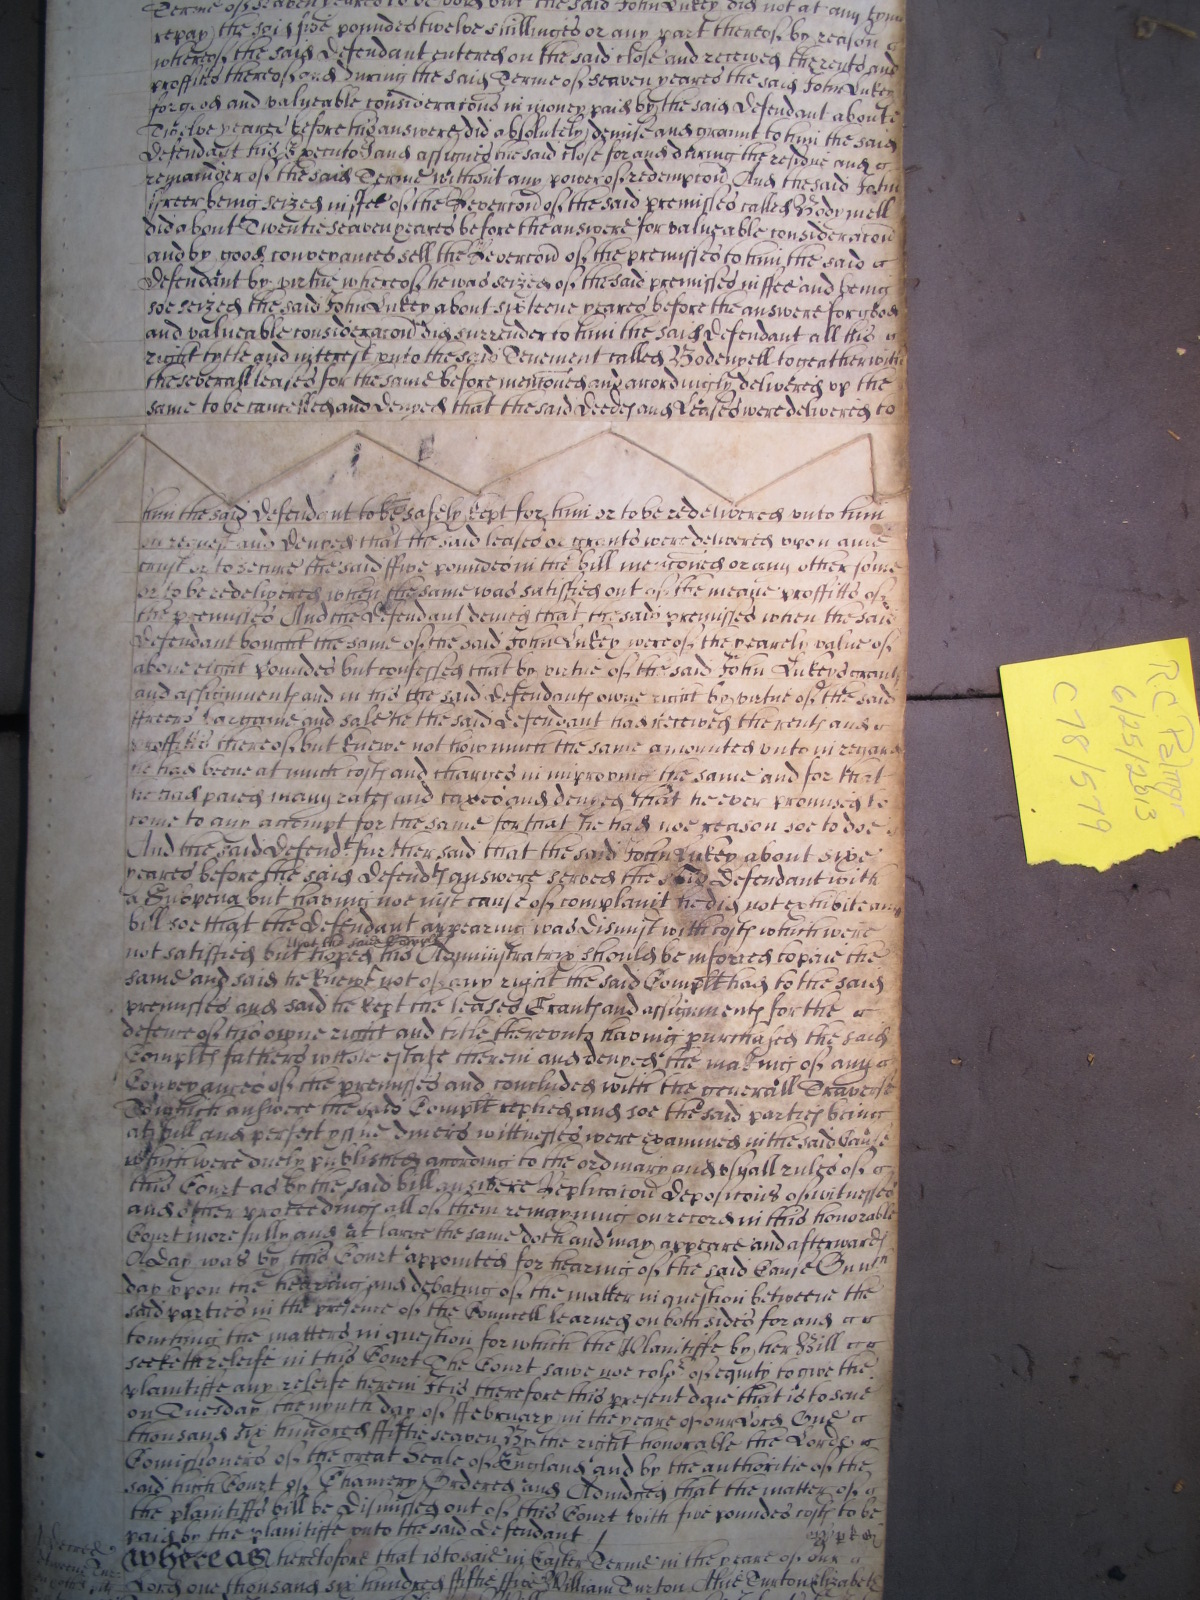 Terme of seaven yeares to be void but the said John Lukey did not at any tyme
repay the said five poundes twelve shillinges or any part thereof by reason
whereof the said Defendant entered on the said close and receaved the rents and
proffitts thereof and during the said Terme of seaven yeares the said John Lukey
for good and valueable consideracons in money paid by the said Defendant about
Twelve yeares before his answere did absolutely demise and graunt to him the said
Defendant his Executors and assignes the said close for and during the residue and
remainder of the said Terme without any power of redempcon And the said John
ffreer being seized in ffee of the Revercon of the said premisses called Bodymell
did about Twentie seaven yeares before the answere for valueable consideracon
and by good conveyances sell the Revercon of the premisses to him the said
Defendant by virtue whereof he was seized of the said premisses in ffee and being
soe seized the said John Lukey about sixteene yeares before the answere for good
and valueable consideracon did surrender to him the said Defendant all his
right tytle and interest unto the said Tenement called Bodenyell togeather with
the severall leases for the same before mencioned and accordingly delivered up the
same to be cancelled and denyed that the said Deedes and Leases were delivered to
him the said Defendant to be safely kept for him or to be redelivered unto him
on request and denyed that the said leases or grants were delivered upon anie
trust or to secure the said ffive poundes in the bill mencioned or any other some
or to be redelivered when the same was satisfied out of the meane proffitts of
the premisses And the Defendant denied that the said premisses when the said
Defendant bought the same of the said John Lukey were of the yearely value of
above eight poundes but confessed that by virtue of the said John Lukeys grants
and assignments and in his the said Defendants owne right by virtue of the said
ffreers bargaine and sale he the said defendant had receaved the rents and
proffitts thereof but knewe not how much the same amounted unto in regard
he had beene at much costs and charges in improving the same and for that
he had paied many rates and taxes and denyed that he ever promised to
come to any attempt for the same for that he had noe reason soe to doe
And the said Defendt further said that the said John Lukey about sixe
yeares before the said Defendts answere served the said Defendant with
a Subpena but having noe just cause of complaint he did not exhibite any
bill soe that the Defendant appearing was dismist with costs which were
not satisfied but hoped his Administratrix should be inforced to paie the
same and said he knewe not of any right the said Complt had to the said
premisses and said he kept the leases Grants and assignments for the
defence of his owne right and title thereunto having purchased the said
Complts fathers whole estate therein and denyed the making of any
Conveyances of the premisses and concluded with the generall Traverse
To which answere the said Complt replied and soe the said parties being
at full and perfect yssue divers wittnesses were examined in the said Cause
which were duely published according to the ordinary and usuall rules of
this Court as by the said bill answere Replicacon deposicons of wittnesses
and other proceedings all of them remayning on record in this honorable
Court more fully and at large the same doth and may appeare and afterwards
A day was by this Court appointed for hearing of the said Cause On wch
day upon the hearing and debating of the matter in question betweene the
said parties in the presence of the Councell learned on both sides for and
touching the matters in question for which the Plaintiffe by her Bill
seeketh releife in this Court The Court sawe noe color of equity to give the
plaintiffe any releife herein It is therefore this present daie that is to saie
on Tuesday the nynth day of ffebruary in the yeare of our Lord One
thousand six hundred ffiftie seaven By the right honorable the Lords
Comissioners of the great Seale of England and by the authoritie of the
said high Court of Chancery Ordered and Adiudged that the matter of
the plaintiffs bill be dismissed out of this Court with five poundes costs to be
paid by the plaintiffe unto the said defendant
Whereas heretofore that is to saie in Easter Terme in the yeare of our
Lord one thousand six hundred ffiftie ffive William Turton Elizabeth
R C Palmer
6/25/2013
C78/579